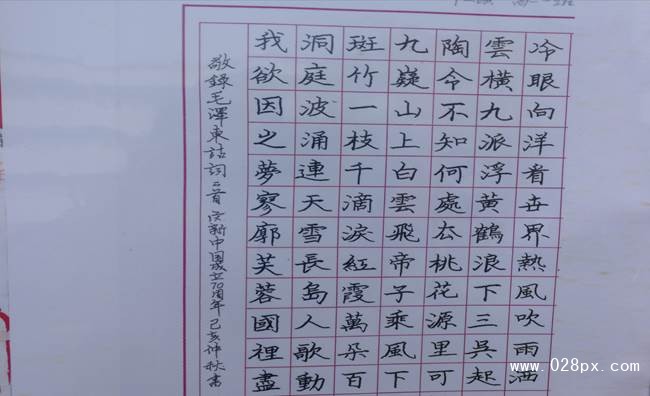 冷眼向洋看世界熱風吹雨洒
雲橫九派浮黃鶴浪下三吳起
陶令不知何處去桃花源里可
九嶷山上白雲飛帝子乘風下
斑竹一枝千滴淚紅霞萬朵百
洞庭波涌連天雪長島人歌動
我欲因之夢寥廓芙蓉國裡盡
敬錄毛澤東詩詞二首 慶新中國成立70周年 己亥仲秋書
www.028px.com